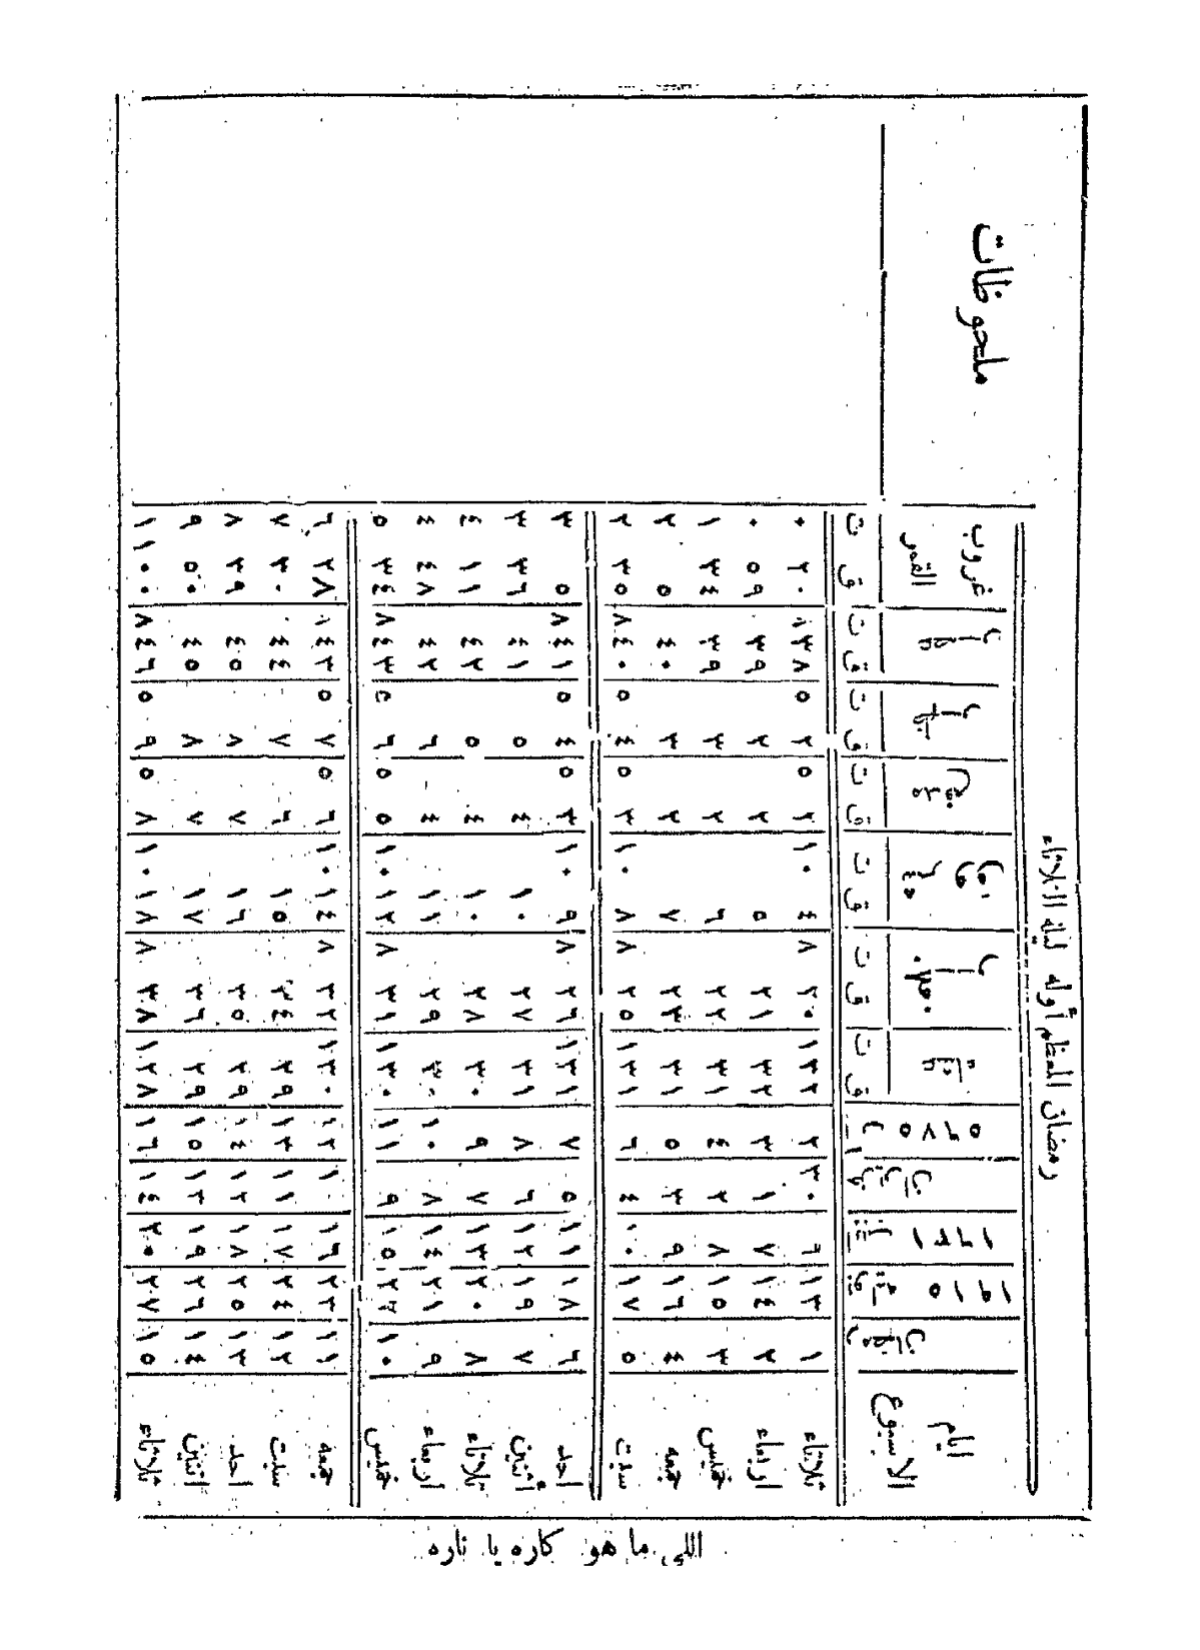 رمضان المعظم أوله ليلة الثلاثاء
ايام الاسبوع رمضان ١٩١٥ ١٦٣١ ٥٦٧٥ غروب القمر ملحوظات
ق ت ق ت ق ت ق ت ق ت ق ت ق ت
ثلاثاء ١ ١٣ ٦ ٣٠ ٢ ٣٢ ١ ٢٠ ٨ ٤ ١٠ ٢ ٥ ٢ ٥ ٣٨ ٨ ٢٠ ٠
اربعاء ٢ ١٤ ٧ ١ ٣ ٣٢ ٢١ ٥ ٢ ٢ ٣٩ ٥٩ ٠
خميس ٣ ١٥ ٨ ٢ ٤ ٣١ ٢٢ ٦ ٢ ٣ ٣٩ ٣٤ ١
جمعه ٤ ١٦ ٩ ٣ ٥ ٣١ ٢٣ ٧ ٢ ٣ ٤٠ ٥ ٢
سبت ٥ ١٧ ١٠ ٤ ٦ ٣١ ١ ٢٥ ٨ ٨ ١٠ ٣ ٥ ٤ ٥ ٤٠ ٨ ٣٥ ٢
احد ٦ ١٨ ١١ ٥ ٧ ٣١ ١ ٢٦ ٨ ٩ ١٠ ٣ ٥ ٤ ٥ ٤١ ٨ ٥ ٣
أثنين ٧ ١٩ ١٢ ٦ ٨ ٣١ ٢٧ ١٠ ٤ ٥ ٤١ ٣٦ ٣
ثلاثاء ٨ ٢٠ ١٣ ٧ ٩ ٣٠ ٢٨ ١٠ ٤ ٥ ٤٢ ١١ ٤
اربعاء ٩ ٢١ ١٤ ٨ ١٠ ٣٠ ٢٩ ١١ ٤ ٦ ٤٢ ٤٨ ٤
خميس ١٠ ٢٢ ١٥ ٩ ١١ ٣٠ ١ ٣١ ٨ ١٢ ١٠ ٥ ٥ ٦ ٥ ٤٣ ٨ ٣٤ ٥
جمعه ١١ ٢٣ ١٦ ١٠ ١٢ ٣٠ ١ ٣٢ ٨ ١٤ ١٠ ٦ ٥ ٧ ٥ ٤٣ ٨ ٢٨ ٦
سبت ١٢ ٢٤ ١٧ ١١ ١٣ ٢٩ ٣٤ ١٥ ٦ ٧ ٤٤ ٣٠ ٧
احد ١٣ ٢٥ ١٨ ١٢ ١٤ ٢٩ ٣٥ ١٦ ٧ ٨ ٤٥ ٣٩ ٨
اثنين ١٤ ٢٦ ١٩ ١٣ ١٥ ٢٩ ٣٦ ١٧ ٧ ٨ ٤٥ ٥٠ ٩
ثلاثاء ١٥ ٢٧ ٢٠ ١٤ ١٦ ٢٨ ١ ٣٨ ٨ ١٨ ١٠ ٨ ٥ ٩ ٥ ٤٦ ٨ ٠ ١١
اللى ما هو كاره يا ناره